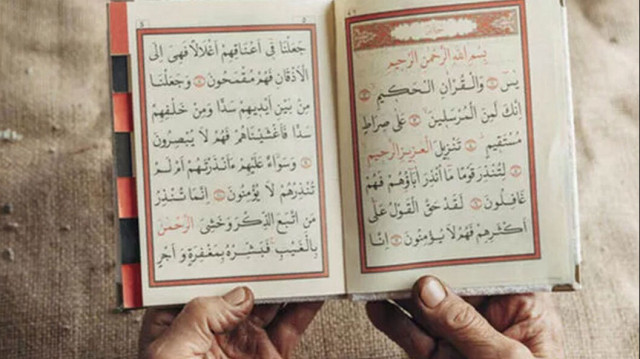 بِسْمِ اللهِ الرَّحْمٰنِ الرَّحِيمِ
يٰسٓ ۝ وَالْقُرْاٰنِ الْحَكِيمِ ۝
اِنَّكَ لَمِنَ الْمُرْسَلِينَ ۝ عَلٰى صِرَاطٍ
مُسْتَقِيمٍ ۝ تَنْزِيلَ الْعَزِيزِ الرَّحِيمِ
۝ لِتُنْذِرَ قَوْمًا مَا اُنْذِرَ اٰبَاؤُهُمْ فَهُمْ
غَافِلُونَ ۝ لَقَدْ حَقَّ الْقَوْلُ عَلٰى
اَكْثَرِهِمْ فَهُمْ لَا يُؤْمِنُونَ ۝ اِنَّا
جَعَلْنَا فِى اَعْنَاقِهِمْ اَغْلَالًا فَهِىَ اِلَى
الْاَذْقَانِ فَهُمْ مُقْمَحُونَ ۝ وَجَعَلْنَا
مِنْ بَيْنِ اَيْدِيهِمْ سَدًّا وَمِنْ خَلْفِهِمْ
سَدًّا فَاَغْشَيْنَاهُمْ فَهُمْ لَا يُبْصِرُونَ
۝ وَسَوَاءٌ عَلَيْهِمْ ءَاَنْذَرْتَهُمْ اَمْ لَمْ
تُنْذِرْهُمْ لَا يُؤْمِنُونَ ۝ اِنَّمَا تُنْذِرُ
مَنِ اتَّبَعَ الذِّكْرَ وَخَشِىَ الرَّحْمٰنَ
بِالْغَيْبِ فَبَشِّرْهُ بِمَغْفِرَةٍ وَ اَجْرٍ